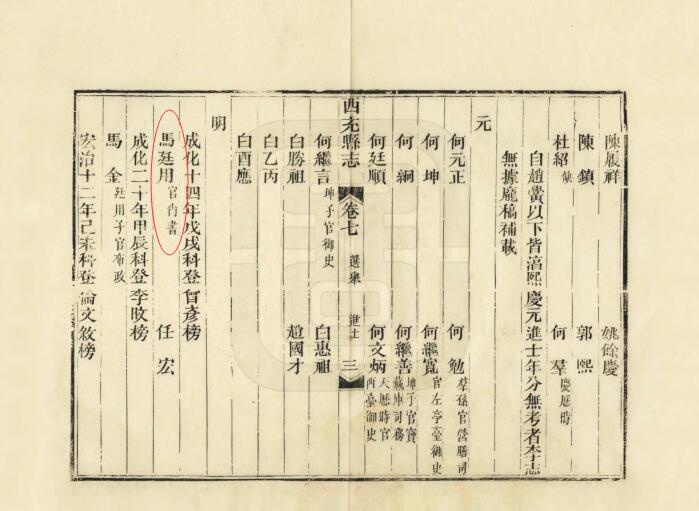 陳履祥　姚餘慶
陳鎮　郭熙
杜紹缺　何羣慶厯時
自趙黌以下皆淳熙慶元進士年分無考者李志
無據龐稿補載
元
何元正　何勉羣孫官營膳司
何坤　何繼寬官左亭臺御史
何絅　何繼善坤子官寶藏庫司務
何廷順　何文炳大厯時官西臺御史
西充縣志　卷七　選舉　進士　三
何繼言坤子官御史　白惠祖
白勝祖　趙國才
白乙丙
白酉應
明
成化十四年戊戌科登曾彥榜
馬廷用官尚書　任宏
成化二十年甲辰科登李旼榜
馬金廷用子官布政
宏治十二年己未科登倫文敘榜